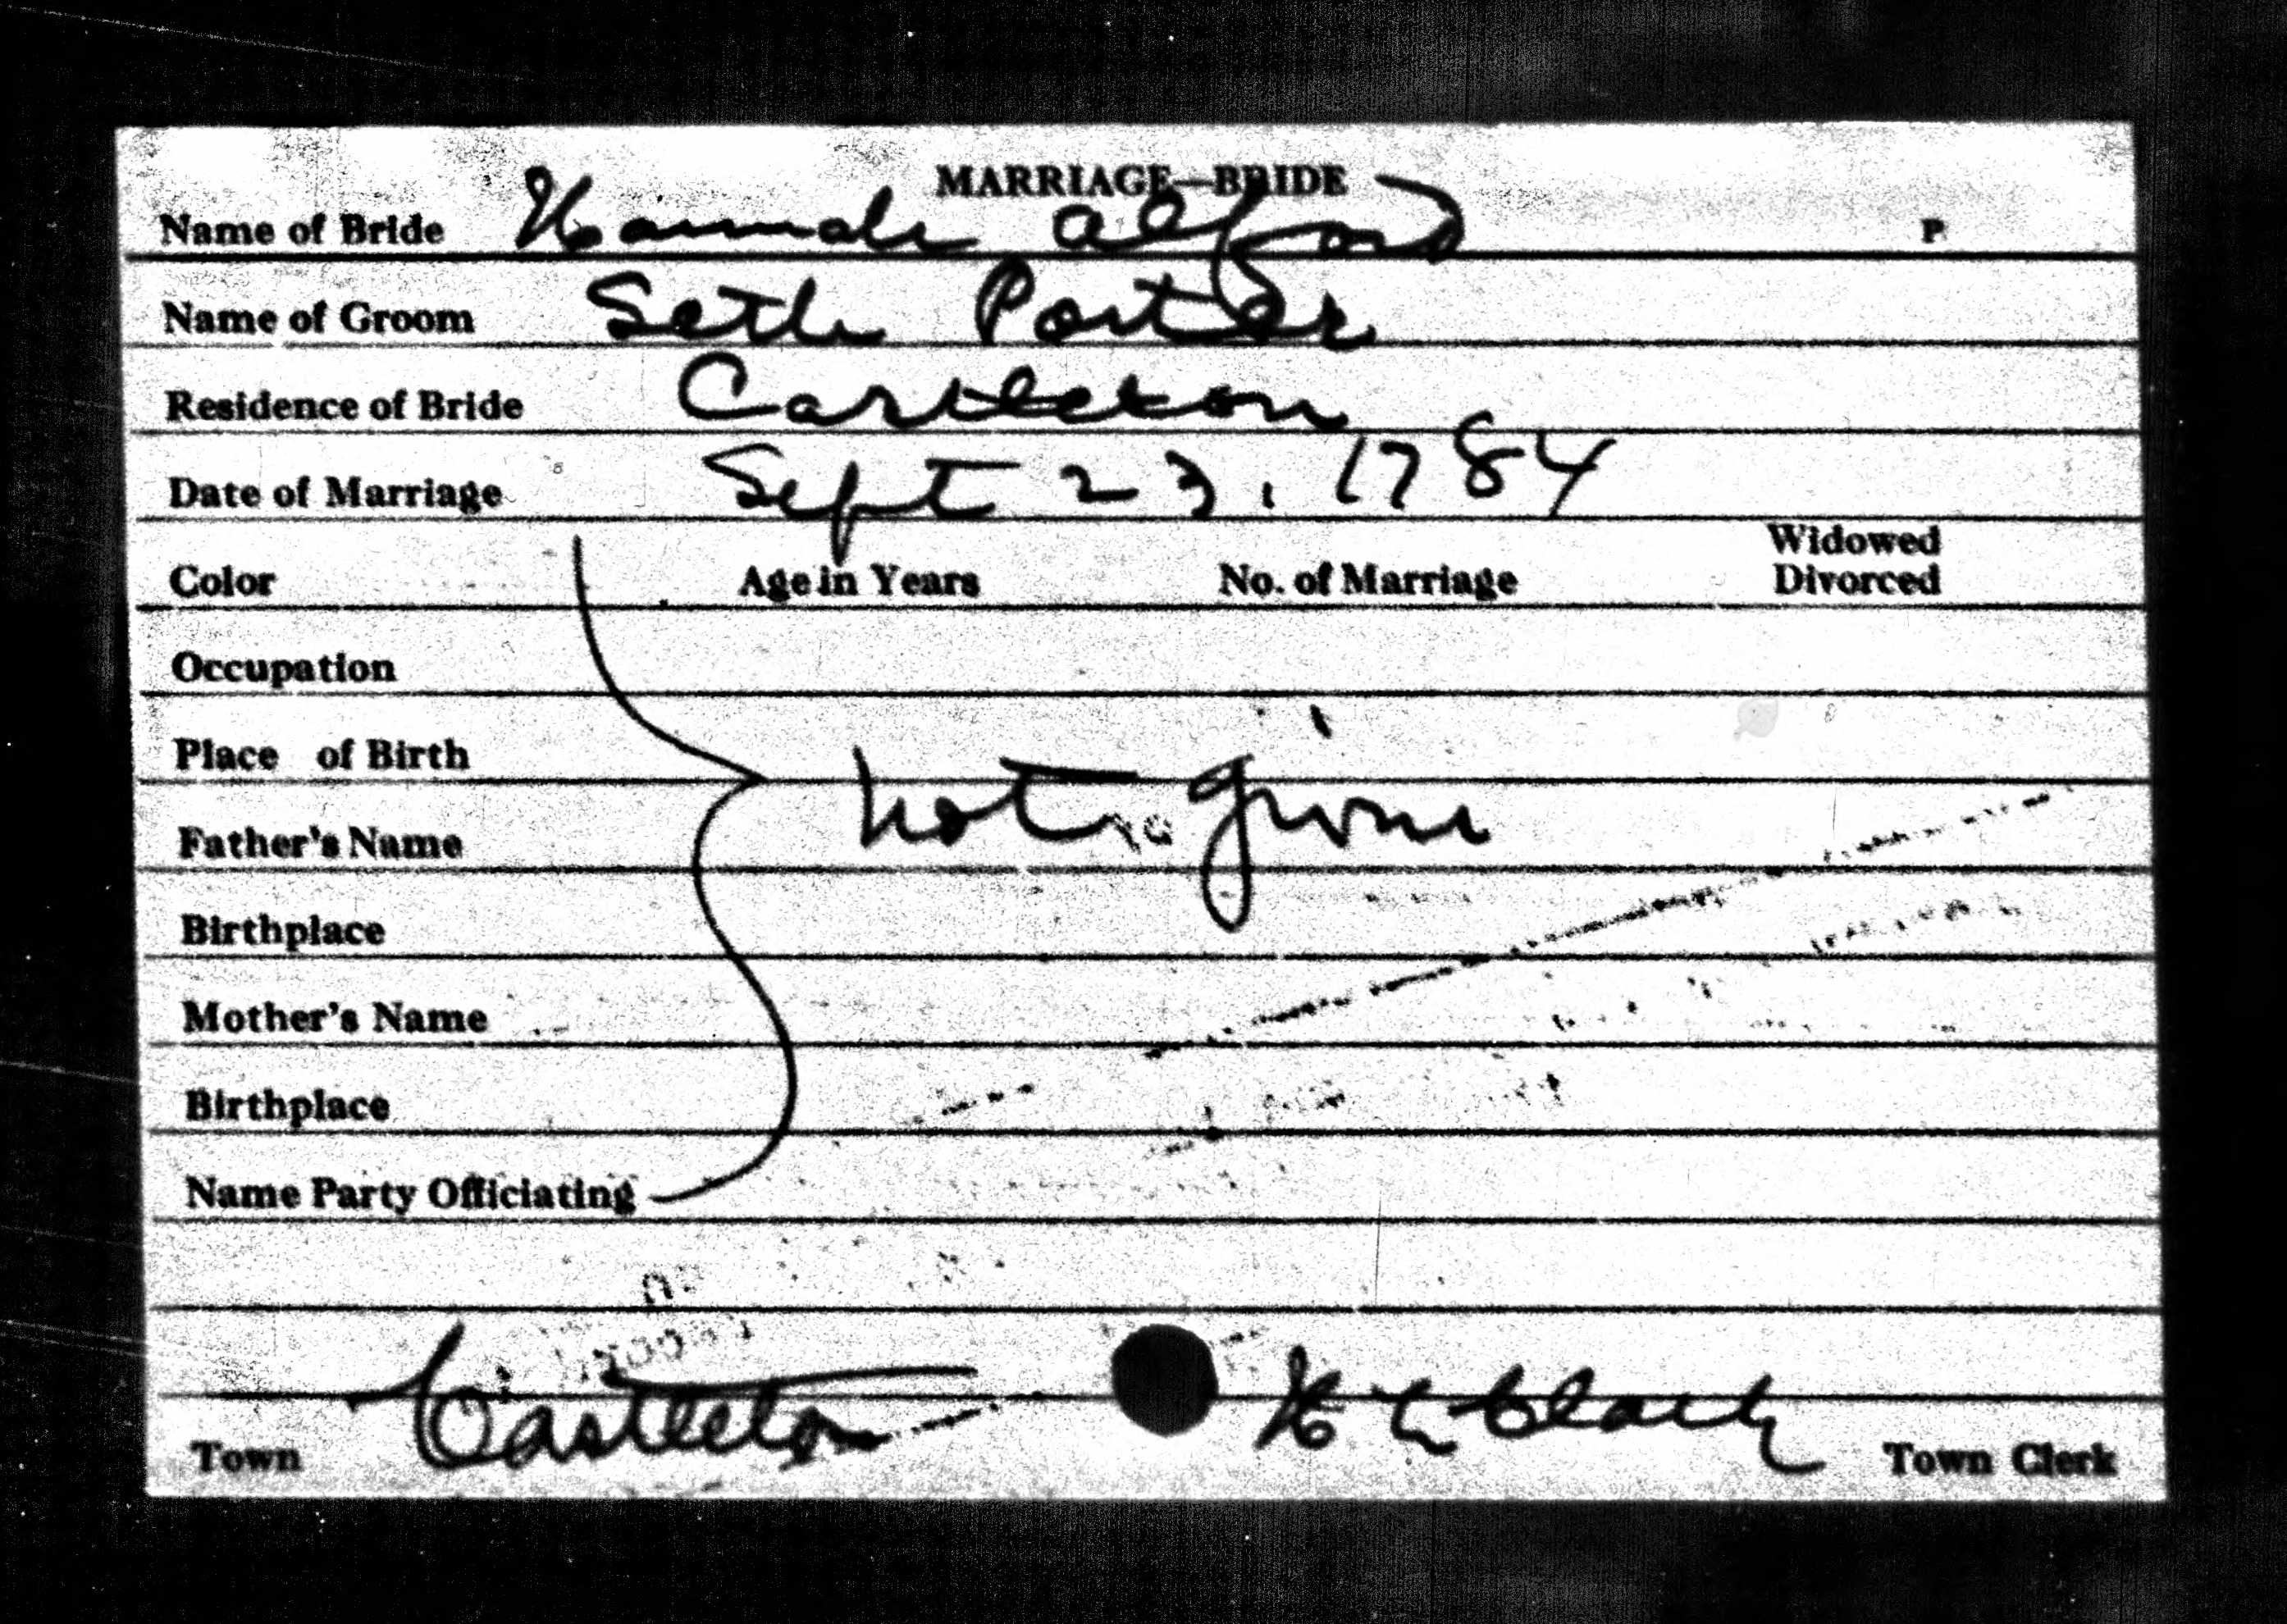 MARRIAGE—BRIDE
Name of Bride Hannah Alford P
Name of Groom Seth Porter
Residence of Bride Castleton
Date of Marriage Sept 23, 1784
Color Age in Years No. of Marriage Widowed Divorced
Occupation
Place of Birth
not given
Father's Name
Birthplace
Mother's Name
Birthplace
Name Party Officiating
Town Castleton H L Clark Town Clerk